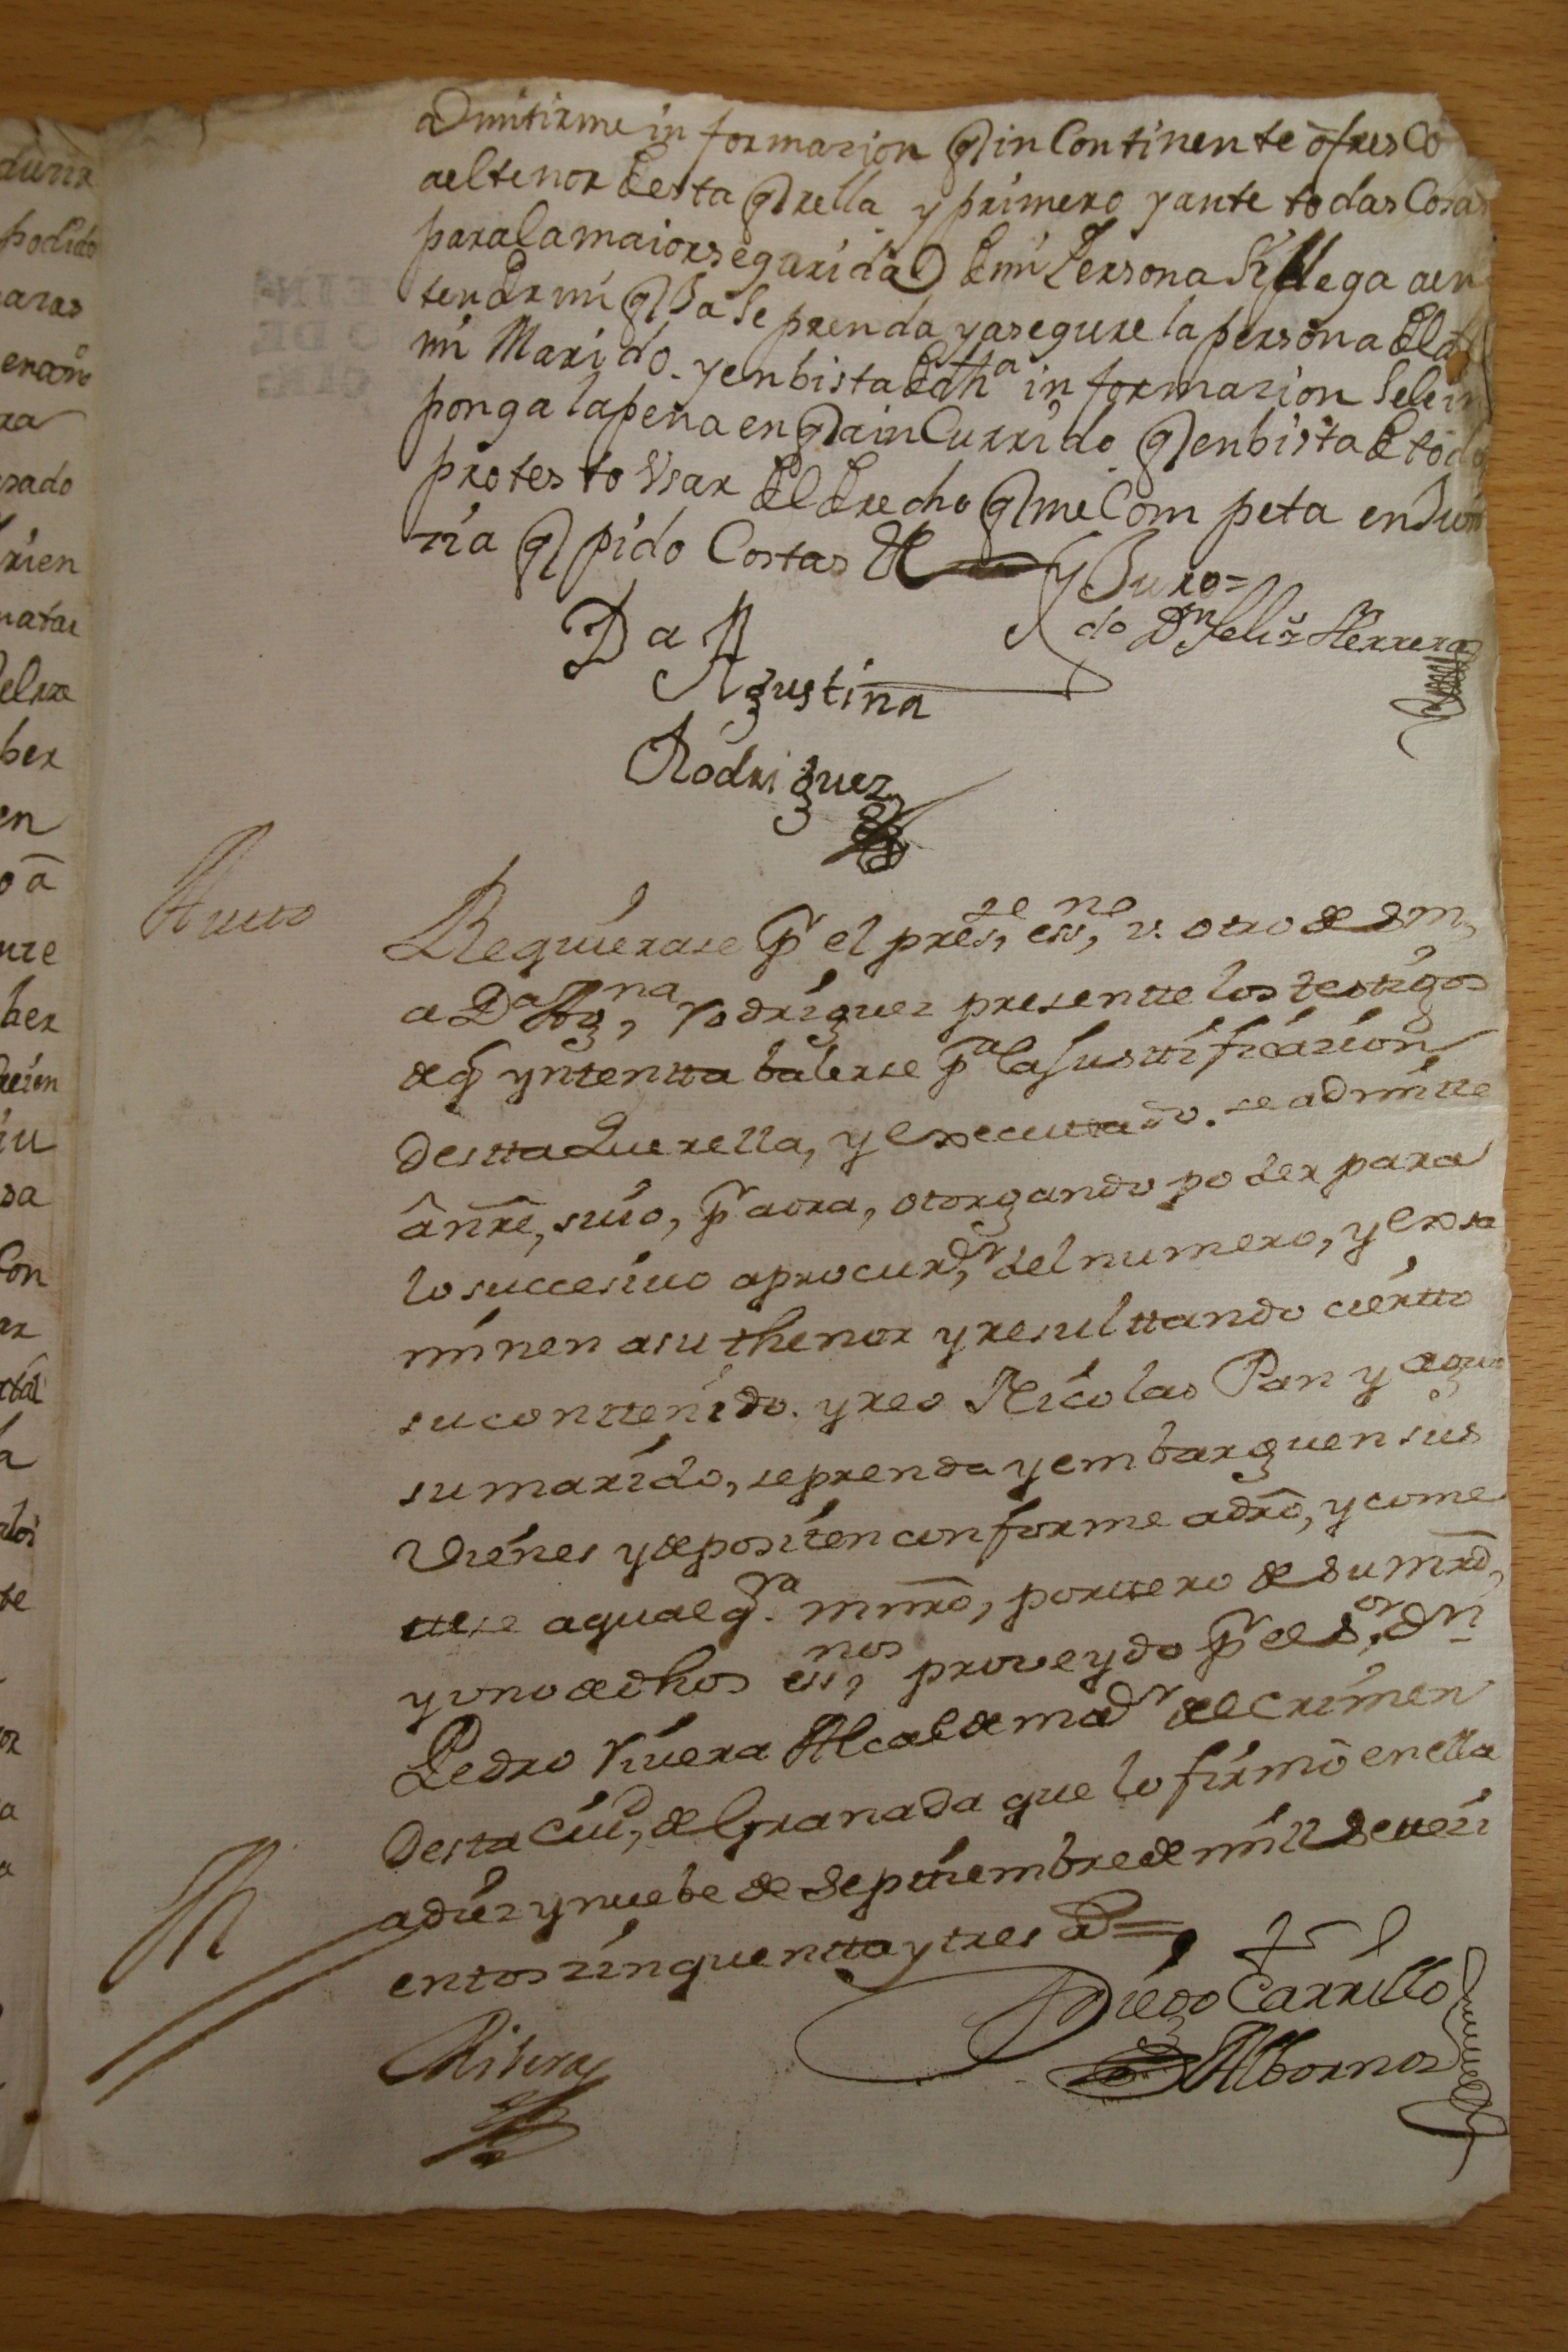 admitirme informazion q in Continente ofresCo
ael tenor desta qrella y primero y ante todas Cosas
para la maior segurida D de mi Persona si llega a en
tender mi qxa Se prenda y asegure la persona del dho
mi Marido. y en bista de dha informazion Sele im
ponga la pena en q a inCurrido q en bista de todo
protesto Vsar del derecho q me Competa en Jus
tizia q pido Costas &
y Juro=
do Dn Feliz Herrera
Da
Agustina
Rodriguez
Autto
Requierase pr el preste essno v. otro de S m
a Da Agna Rodriguez presentte los testigos
de q yntentta balerse pa la Justtificazion
destta Querella, y executtado. se admitte
â nre, suio, pr aora, otorgando poder para
lo succesiuo a procurdr del numero, y exsa
minen a su thenor y resulttando ciertto
su conttenido. y reo Nicolas Pan y agua
su marido, se prenda y embarguen sus
vienes y depositen conforme a dro, y come
ttese a qualeqra mnro, porttero de su mrd,
y uno de dhos essnos proveydo pr el Sor Dn
Pedro Riuera Alcalde madr del crimen
desta Ciud, de Granada que lo firmô en ella
a diez y nuebe de Septtiembre de mill settezi
entos zinquentta y tres ad=
Diego Carrillo
Albornoz
Ribera